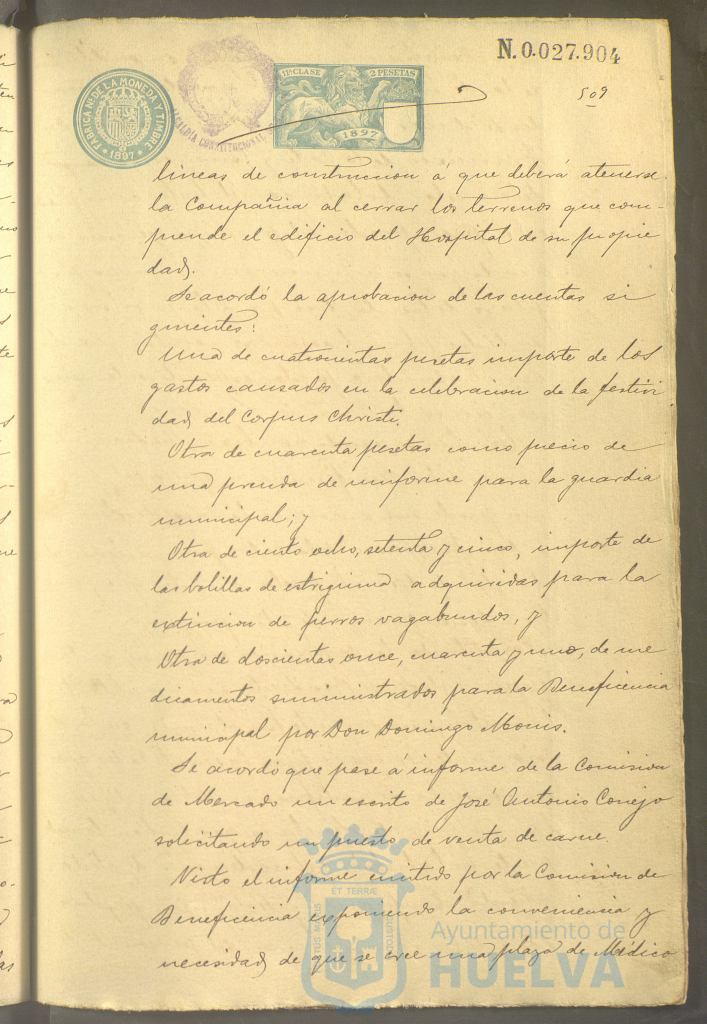 N.0.027.904
509
FABRICA NL. DE LA MONEDA Y TIMBRE
* 1897 *
ALCALDIA CONSTITUCIONAL
11ª CLASE 2 PESETAS
1897
lineas de construccion á que deberá atenerse
la Compañia al cerrar los terrenos que com-
prende el edificio del Hospital de su propie
dad.
Se acordó la aprobacion de las cuentas si
guientes:
Una de cuatrocientas pesetas importe de los
gastos causados en la celebracion de la festivi
dad del Corpus Christi.
Otra de cuarenta pesetas como precio de
una prenda de uniforme para la guardia
municipal; y
Otra de ciento ocho, setenta y cinco, importe de
las bolillas de estrignina adquiridas para la
extincion de perros vagabundos, y
Otra de doscientas once, cuarenta y uno, de me
dicamentos suministrados para la Beneficencia
municipal por Don Domingo Monis.
Se acordó que pase á informe de la Comision
de Mercado un escrito de José Antonio Conejo
solicitando un puesto de venta de carne.
Visto el informe emitido por la Comision de
Beneficencia exponiendo la conveniencia y
necesidad de que se cree una plaza de Médico
ET TERRÆ
PORTUS MARIS
CUSTODIA
Ayuntamiento de
HUELVA